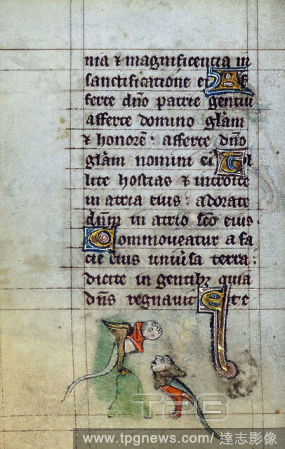 nia & magnificencia in
sanctificatione ei Af
ferte dño patrie gentiū
afferte domino glām
& honorē: afferte dño
glām nomini ei Tol
lite hostias & introite
in atria eius: adorate
dñm in atrio sc̄o eius
Commoveatur a fa
cie eius univ̄sa terra:
dicite in gentibꝫ quia
dñs regnavit Ete
TPG
www.tpgnews.com/達志影像